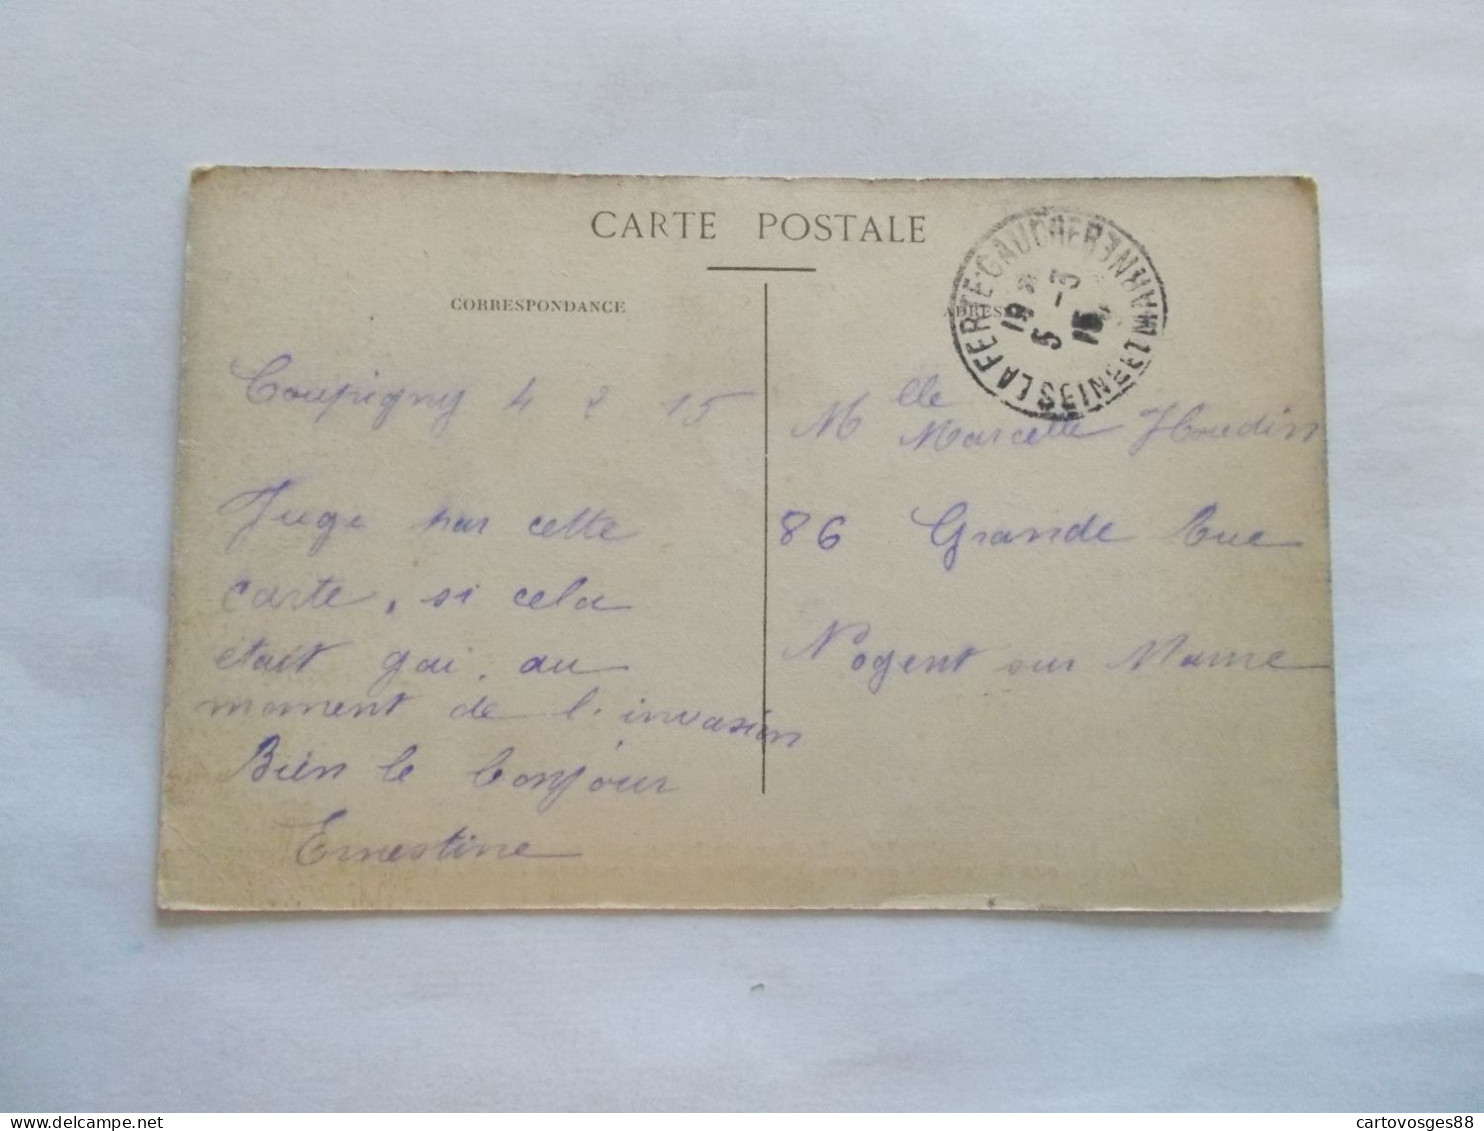 CARTE POSTALE
CORRESPONDANCE
ADRESSE
LA FERTE-GAUCHER SEINE ET MARNE
5 -3 15
Coupigny 4 2 15
Juge par cette
carte, si cela
était gai, au
moment de l'invasion
Bien le bonjour
Ernestine
Mlle Marcelle Houdin
86 Grande Rue
Nogent sur Marne
cartovosges88